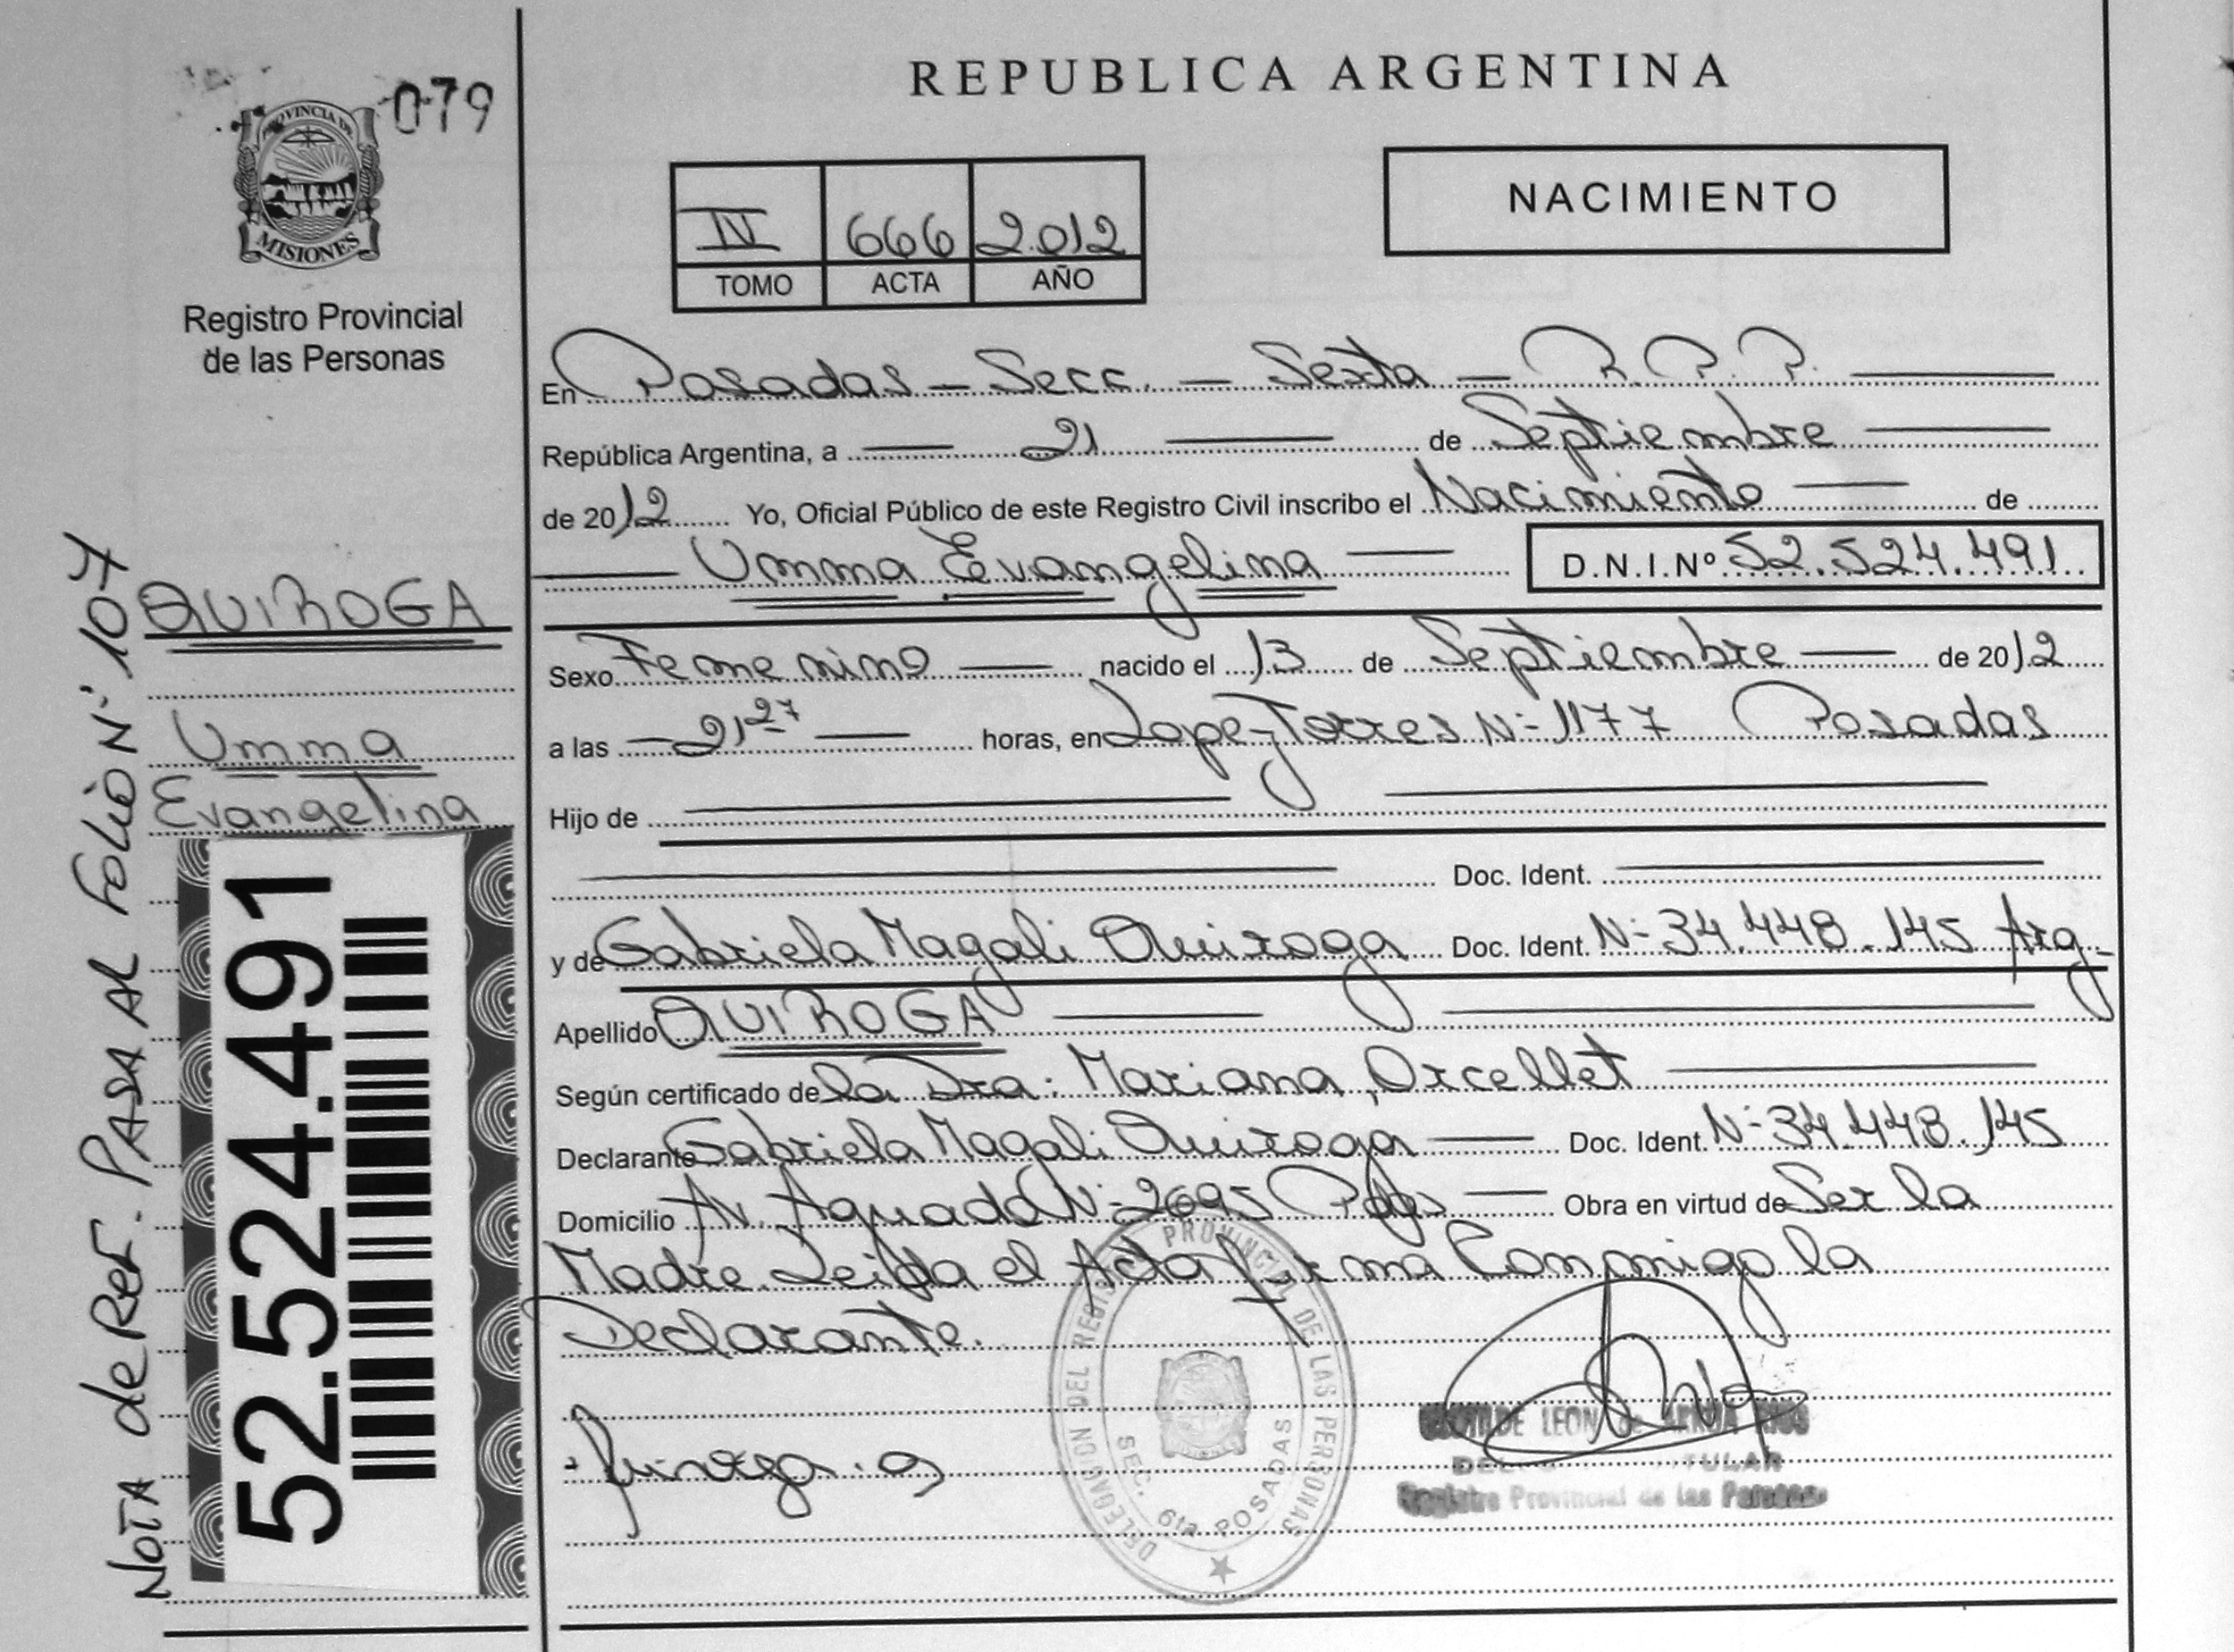 079
PROVINCIA DE
MISIONES
Registro Provincial
de las Personas
QUIROGA
Umma
Evangelina
52.524.491
NOTA de REF. PASA AL FOLIO Nº 107
REPUBLICA ARGENTINA
IV 666 2.012
TOMO ACTA AÑO
NACIMIENTO
En Posadas — Secc. — Sexta — R.P.P. —
República Argentina, a — 21 — de Septiembre —
de 2012 Yo, Oficial Público de este Registro Civil inscribo el Nacimiento — de
— Umma Evangelina — D.N.I.Nº 52.524.491
Sexo Femenino — nacido el 13 de Septiembre — de 2012
a las — 21 27 — horas, en Lope Torres Nº 1177 Posadas
Hijo de
Doc. Ident.
y de Gabriela Magali Quiroga Doc. Ident. Nº 34.448.145 Arg
Apellido QUIROGA
Según certificado de la Dra: Mariana Orcellet
Declarante Gabriela Magali Quiroga — Doc. Ident. Nº 34.448.145
Domicilio Av. Aguado Nº 2695 Pdas — Obra en virtud de Ser la
Madre. Leida el Acta Firma Conmigo la
Declarante.
Quiroga . g
DELEGACION DEL REGISTRO PROVINCIAL DE LAS PERSONAS
SEC. 6ta. POSADAS
LEON de
TITULAR
Registro Provincial de las Personas